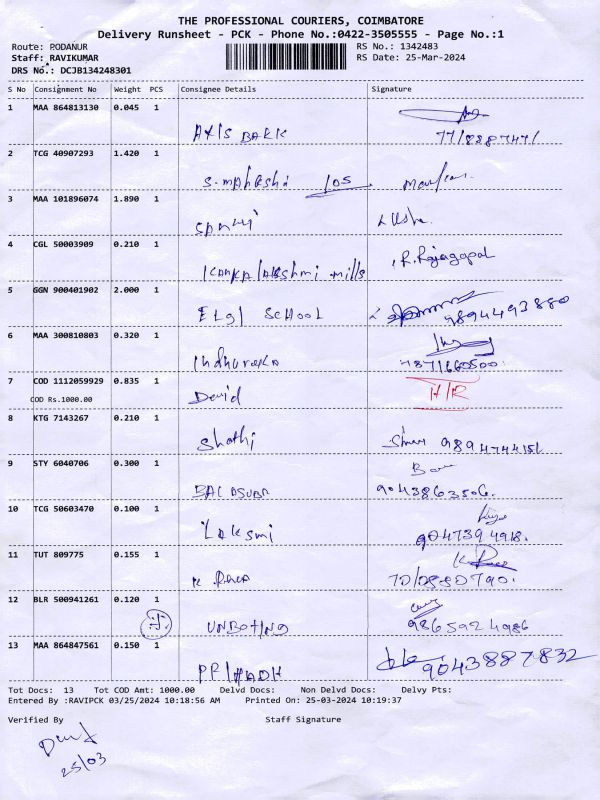 THE PROFESSIONAL COURIERS, COIMBATORE
Delivery Runsheet - PCK - Phone No.:0422-3505555 - Page No.:1
Route: PODANUR RS No.: 1342483
Staff: RAVIKUMAR RS Date: 25-Mar-2024
DRS No.: DCJB134248301
S No Consignment No Weight PCS Consignee Details Signature
1 MAA 864813130 0.045 1
AXIS BAKK
2 TCG 40907293 1.420 1
S. mahesha 105
3 MAA 101896074 1.890 1
4 CGL 50003909 0.210 1
R. Rajagopal
mills
5 GGN 900401902 2.000 1
ELGI SCHOOL 9894493880
6 MAA 300810803 0.320 1
7 COD 1112059929 0.835 1
COD Rs.1000.00
David
8 KTG 7143267 0.210 1
Shathi
9 STY 6040706 0.300 1
9043863506.
10 TCG 50603470 0.100 1
Laksmi 9047394918.
11 TUT 809775 0.155 1
12 BLR 500941261 0.120 1
9865924986
13 MAA 864847561 0.150 1
9043887832
Tot Docs: 13 Tot COD Amt: 1000.00 Delvd Docs: Non Delvd Docs: Delvy Pts:
Entered By :RAVIPCK 03/25/2024 10:18:56 AM Printed On: 25-03-2024 10:19:37
Verified By Staff Signature
25/03